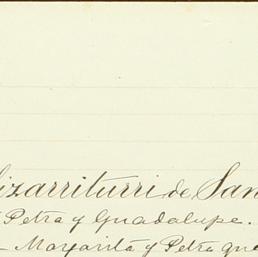 izarriturri de San
Petra y Guadalupe.
Margarita y Petra que